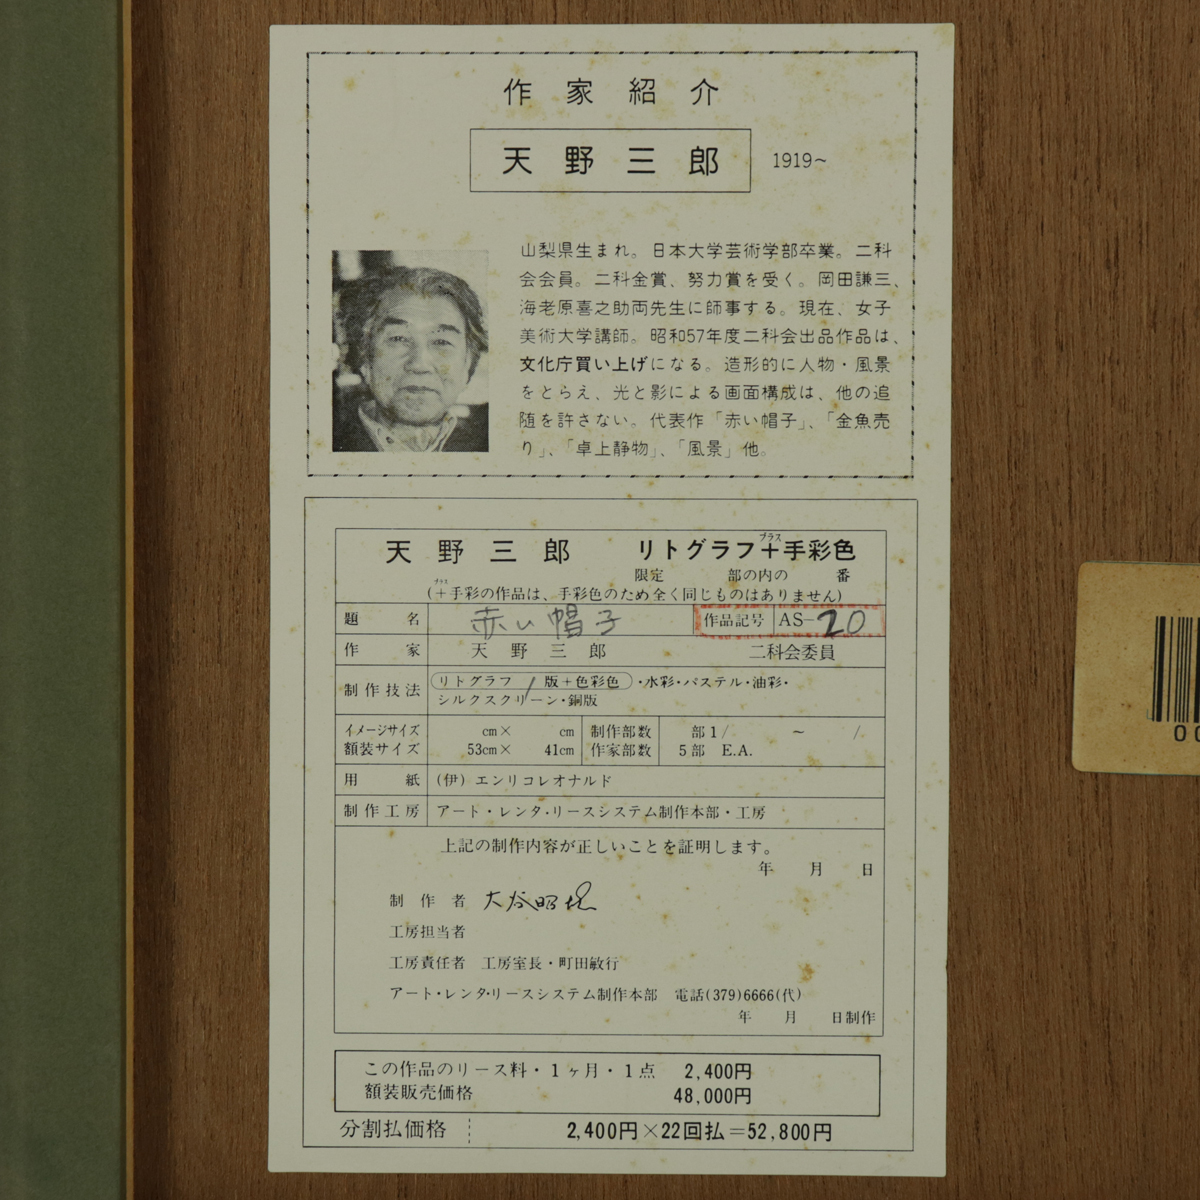 作家紹介
天野三郎 1919~
山梨県生まれ。日本大学芸術学部卒業。二科
会会員。二科金賞、努力賞を受く。岡田謙三、
海老原喜之助両先生に師事する。現在、女子
美術大学講師。昭和57年度二科会出品作品は、
文化庁買い上げになる。造形的に人物・風景
をとらえ、光と影による画面構成は、他の追
随を許さない。代表作「赤い帽子」、「金魚売
り」、「卓上静物」、「風景」他。
プラス
天野三郎 リトグラフ+手彩色
限定 部の内の 番
プラス
(+手彩の作品は、手彩色のため全く同じものはありません)
題名 赤い帽子 作品記号 AS-20
作家 天野三郎 二科会委員
制作技法 リトグラフ / 版+色彩色・水彩・パステル・油彩・
シルクスクリーン・銅版
イメージサイズ cm× cm 制作部数 部1/ ~ /
額装サイズ 53cm× 41cm 作家部数 5部 E.A.
用紙 (伊) エンリコレオナルド
制作工房 アート・レンタ・リースシステム制作本部・工房
上記の制作内容が正しいことを証明します。
年 月 日
制作者
工房担当者
工房責任者 工房室長・町田敏行
アート・レンタ・リースシステム制作本部 電話(379)6666(代)
年 月 日制作
この作品のリース料・1ヶ月・1点 2,400円
額装販売価格 48,000円
分割払価格 2,400円×22回払=52,800円
00